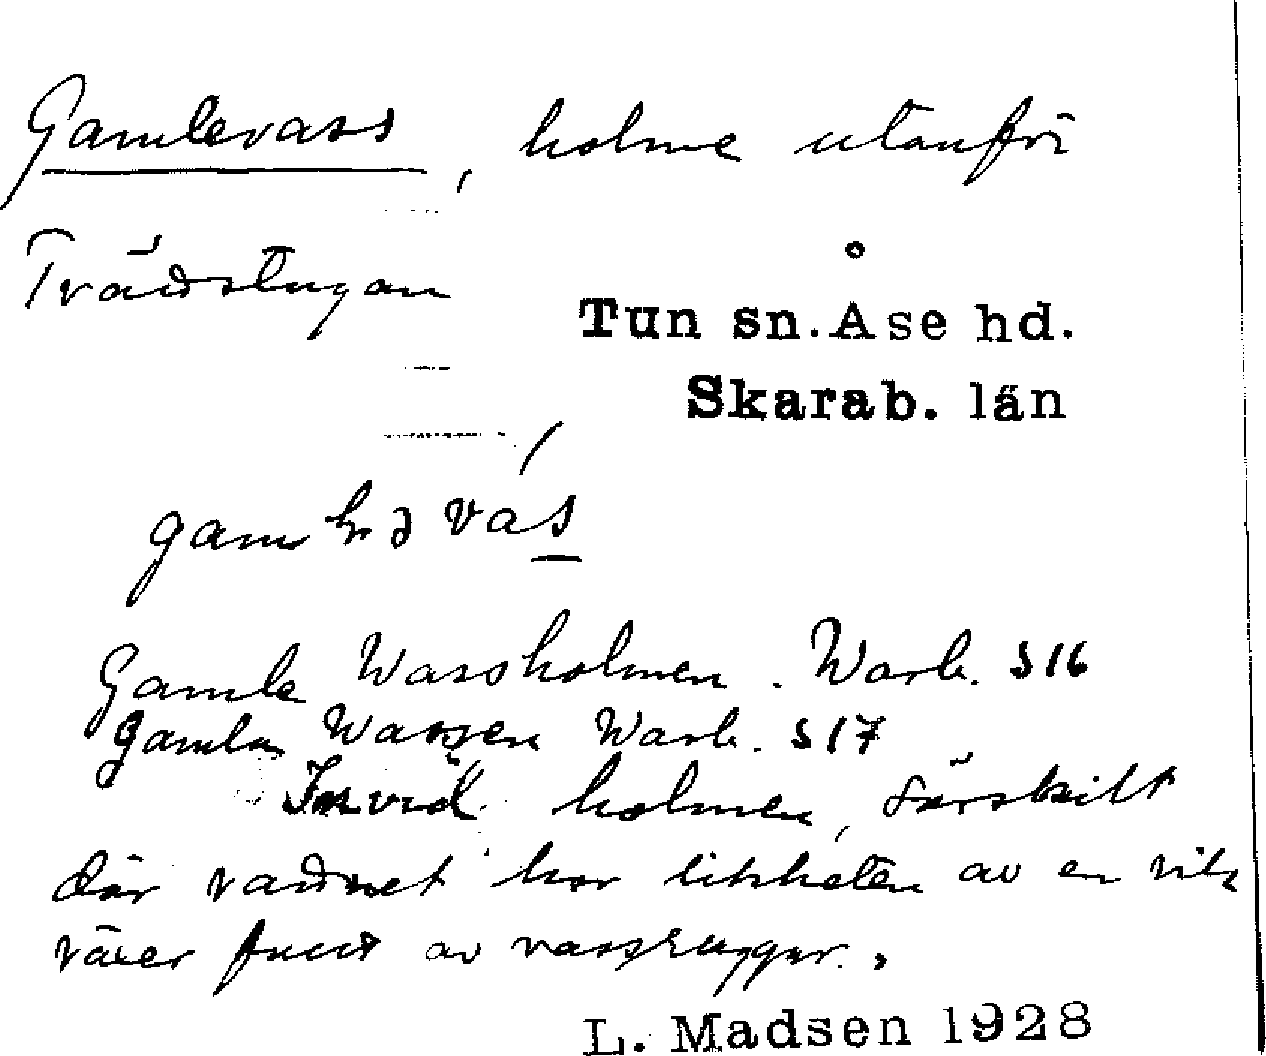 Gamlevass, holme utanför
Trädstugan
Tun sn. Åse hd.
Skarab. län
Gamle Wassholmen. Warb. S 16
Gamla Wassen Warb. S 17
Invid holmen, särskilt
där vattnet har likheten av en vik
växer fullt av vassruggar.
L. Madsen 1928